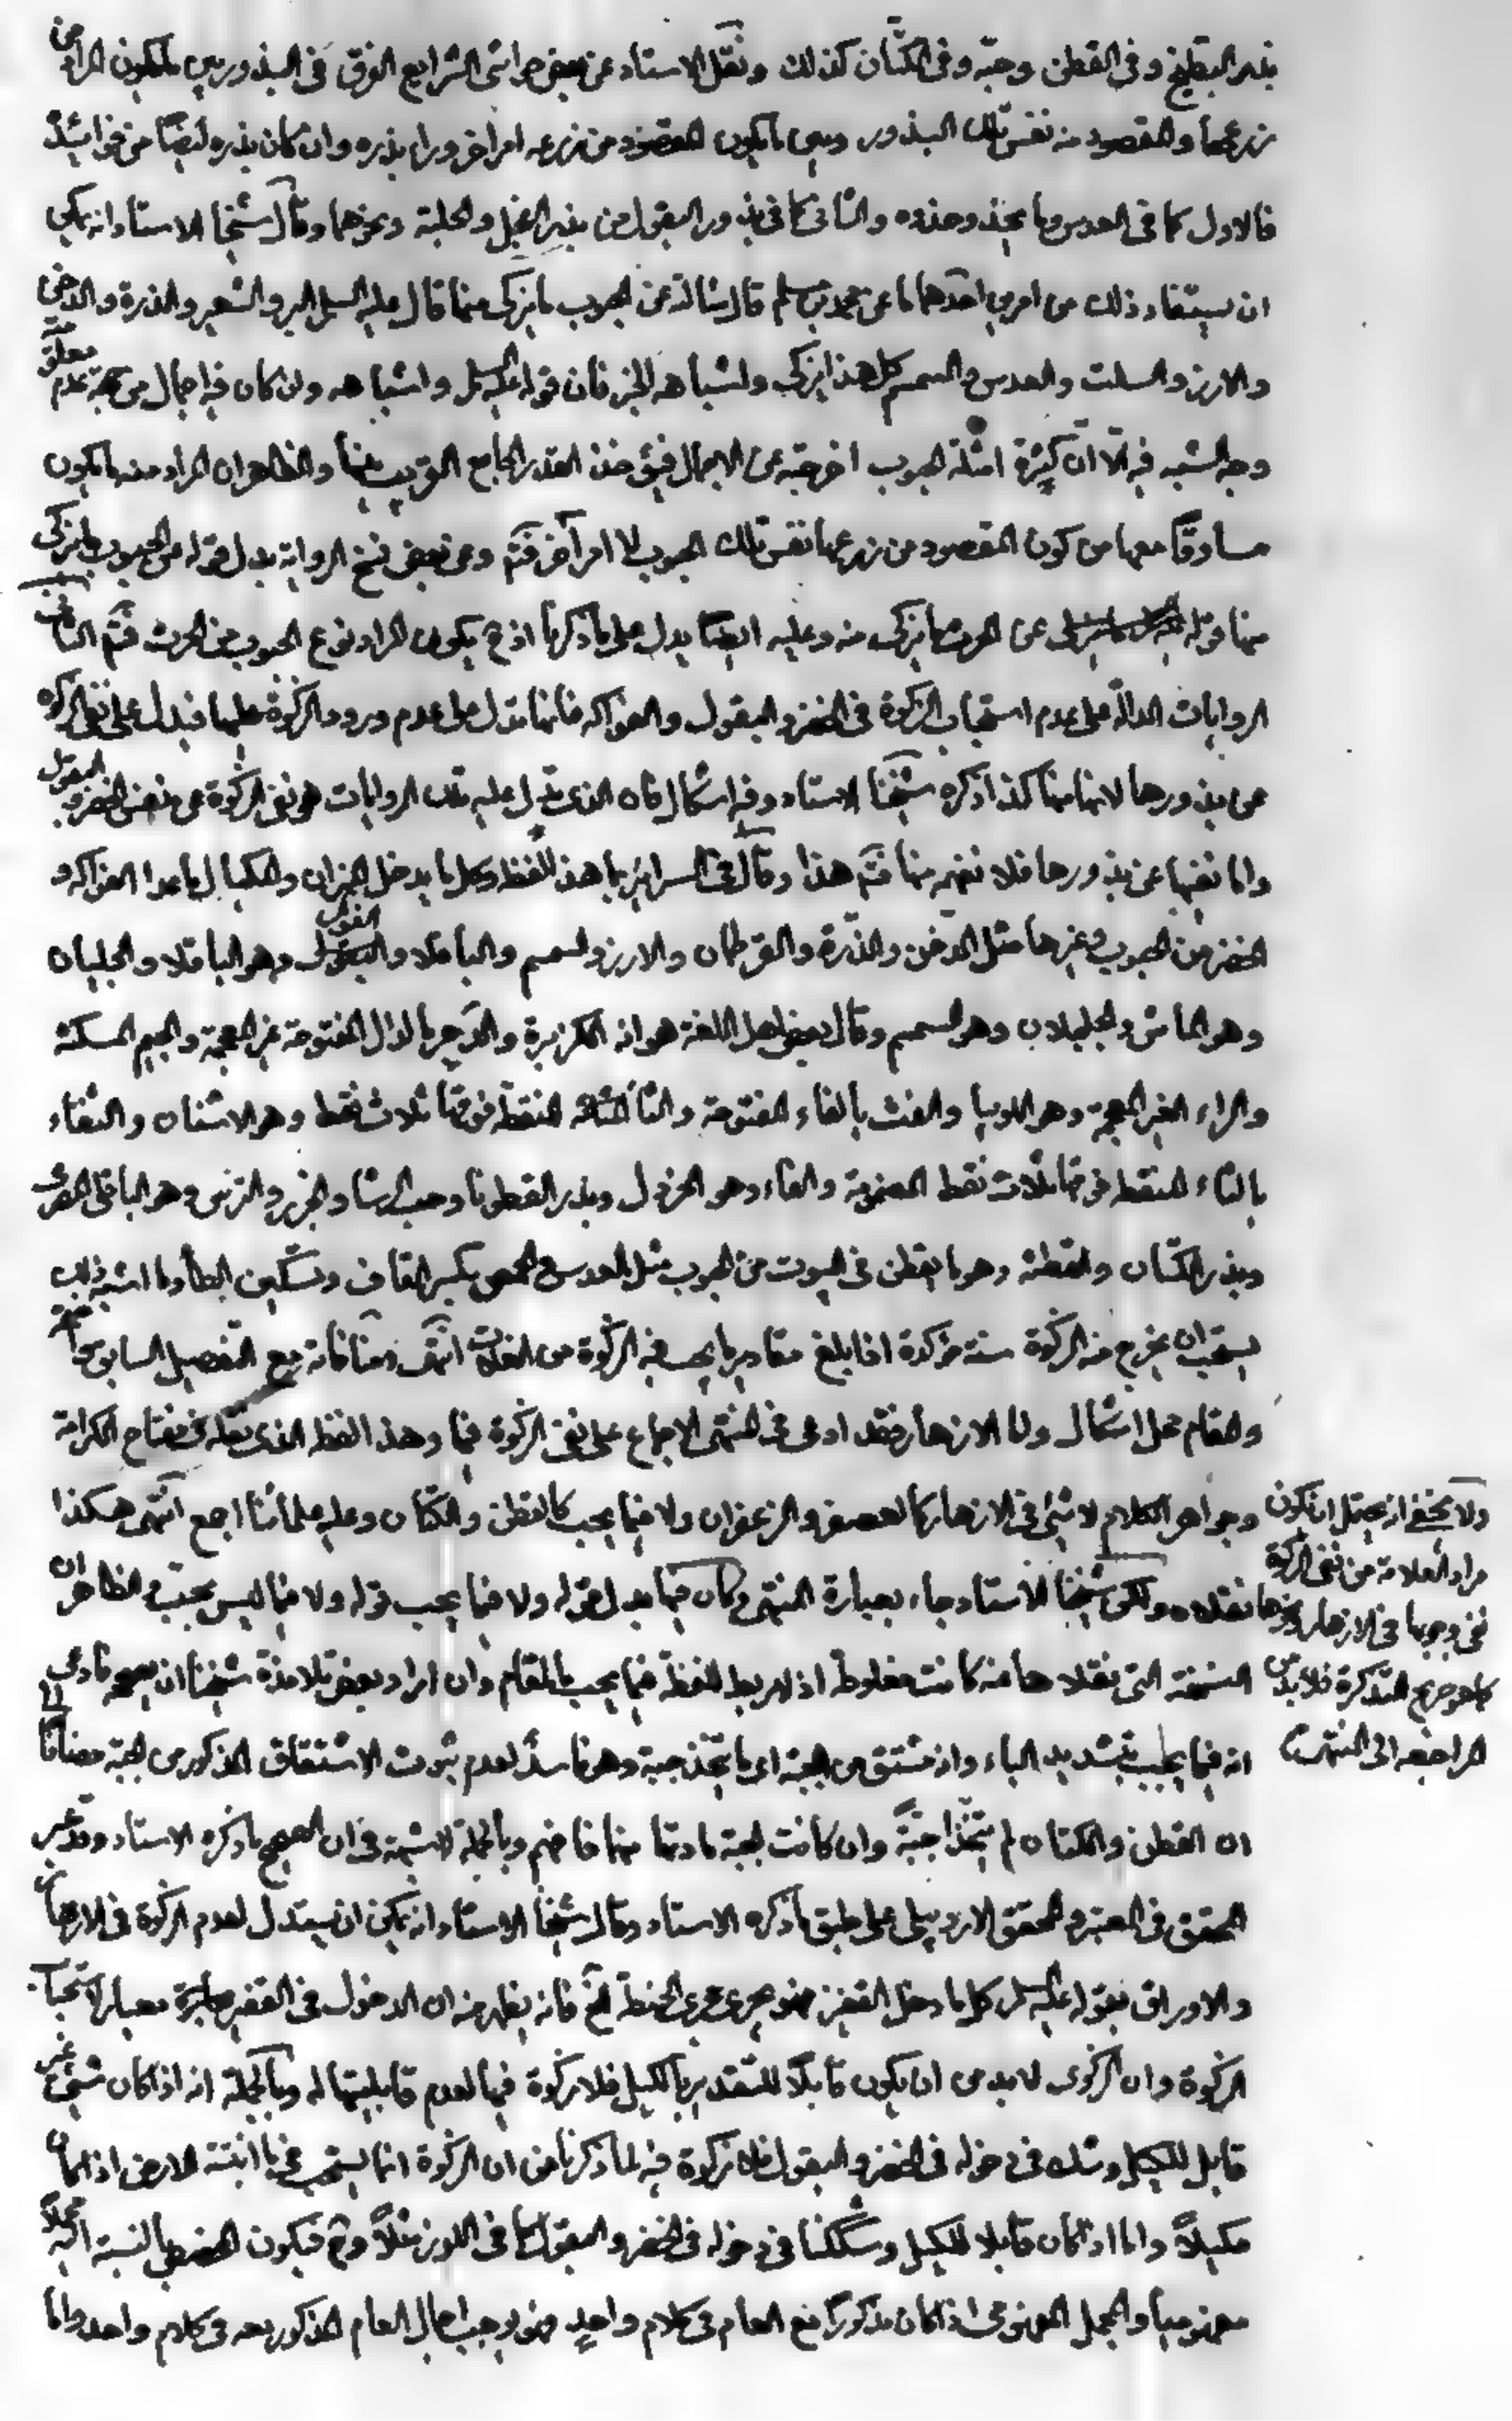 بذر البطيخ وفى القطن وحبّه وفى الكتّان كذلك ونقل الاستاد عن بعض حواشى الشرايع الفرق فى البذور بين مايكون المراد من
زرعها والمقصود منه نفس تلك البذور وبين مايكون المقصود من زرعه امرا اخر وراء بذره وان كان بذره ايضًا من فوائده
فالاول كما فى العدس وما يحذو حذوه والثانى كما فى بذور البقول من بذر الفجل والحلبة ونحوهما وقال شيخنا الاستاد انه يمكن
ان يستفاد ذلك من امرين احدهما ما عن محمد بن مسلم قال سالته عن الحبوب مايزكى منها قال عليه السلم البر والشعير والذرة والدخن
والارز والسلت والعدس والسمسم كل هذا يزكى واشباهه الخبر فان قوله عليه السلم واشباهه وان كان فيه اجمال من جهة عدم
وجه الشبه فيه الّا انّ كثرة امثلة الحبوب اخرجته عن الاجمال فيؤخذ القدر الجامع القريب بينها والظاهر ان المراد منه مايكون
مساوقًا معها من كون المقصود من زرعها نفس تلك الحبوب لا امرا آخر فتم وعن بعض نسخ الرواية بدل قوله عن الحبوب مايزكى
منها قوله عن الحرث مايزكى منه وعليه ايضًا يدل على ماذكرنا اذ ح يكون المراد نوع الحبوب من الحرث فتم الثانى
الروايات الدالّة على عدم استحباب الزكوة فى الخضر والبقول والفواكه فانها تدل على عدم ورود الزكوة عليها فيدل على نفى الزكوة
عن بذورها لانها منها كذا ذكره شيخنا الاستاد وفيه اشكال فان الذى تدل عليه تلك الروايات هو نفى الزكوة عن نفس الخضر والبقول
واما نفيها عن بذورها فلا نفهم منها فتم هذا وقال فى السرائر ما هذا لفظه وكل ما يدخل الميزان والمكيال ماعدا الفواكه و
الخضر من الحبوب وغيرها مثل الدّخن والذّرة والقرطمان والارز والسمسم والباقلا والفول وهو الباقلا والجلبان
وهو الماش والجلجلان وهو السمسم وقال بعض اهل اللغة هو انه الكزبرة والدّجر بالدال المفتوحة غير المعجمة والجيم المسكنة
والراء الغير المعجمة وهو اللوبيا والفث بالفاء المفتوحة والثاء المثلثة المنقطة فوقها ثلاث نقط وهو الاشنان والثفاء
بالثاء المنقطة فوقها ثلاث نقط المضمومة والفاء وهو الخردل وبذر القطونا وحب الرشاد والجزر والترمس وهو الباقلى المصرى
وبذر الكتان والقطنة وهو ما يقطن فى البيوت من الحبوب مثل العدس والحمص بكسر القاف وتسكين الطاء وما اشبه ذلك
يستحب ان يخرج منه الزكوة سنة مؤكدة اذا بلغ مقادير ما يجب فيه الزكوة من الغلات انتهى ومنافاته مع التفصيل السابق
والمقام محل اشكال واما الازهار فقد ادعى فى المنتهى الاجماع على نفى الزكوة فيها وهذا اللفظ الذى نقله فى مفتاح الكرامة
وجواهر الكلام لا شئ فى الازهار كالعصفر والزعفران ولا فيما يجب كالقطن والكتان وعليه علمائنا اجمع انتهى هكذا
نقلاه ولكن شيخنا الاستاد جاء بعبارة المنتهى وكان فيها بدل قوله ولا فيما يجب قوله ولا فيما ليس بحبّ والظاهر ان
النسخة التى نقلا ها منه كانت مغلوطة اذ لا ربط للفظة فيما يجب بالمقام وان اراد بعض تلامذة شيخنا ان يصححه فادعى
انه فيما يحبّب بتشديد الباء وانه مشتق من الجبة اى ما يتخذ جبة وهو فاسد لعدم ثبوت الاشتقاق المذكور من الجبة مضافًا الى
ان القطن والكتان لم يتّخذا جبّةً وان كانت الجبة مادتها منها فافهم وبالجملة لا شبهة فى ان الصحيح ماذكره الاستاد وقد عبر
المحقق فى المعتبر والمحقق الاردبيلى على طبق ماذكره الاستاد وقال شيخنا الاستاد انه يمكن ان يستدل لعدم الزكوة فى الازهار
والاوراق بقوله عليه السلم كل ما دخل القفيز فهو يجرى مجرى الحنطة الخ فانه يظهر منه ان الدخول فى القفيز معيار لاستحباب
الزكوة وان الزكوى لابد من ان يكون قابلًا للتقدير بالكيل فلا زكوة فيها لعدم قابليتها له وبالجملة انه اذا كان شئ غير
قابل للكيل وشك فى دخوله فى الخضر والبقول فلا زكوة فيه لما ذكرنا من ان الزكوة انما يستحب فى ما انبتته الارض اذا كان
مكيلًا واما اذا كان قابلا للكيل وشككنا فى دخوله فى الخضر والبقول كما فى اللوز مثلًا وح فيكون الخضر بالنسبة اليه مجملًا
مفهوميا والمجمل المفهومى اذا كان مذكورًا مع العام فى كلام واحدٍ فهو يوجب اجمال العام المذكور معه فى كلام واحد واما
ولا يخفى انه يحتمل ان تكون
مراد العلامة من نفى الزكوة
نفى وجوبها فى الازهار ونحوها
كما هو صريح التذكرة فلابد من
المراجعه الى المنتهى